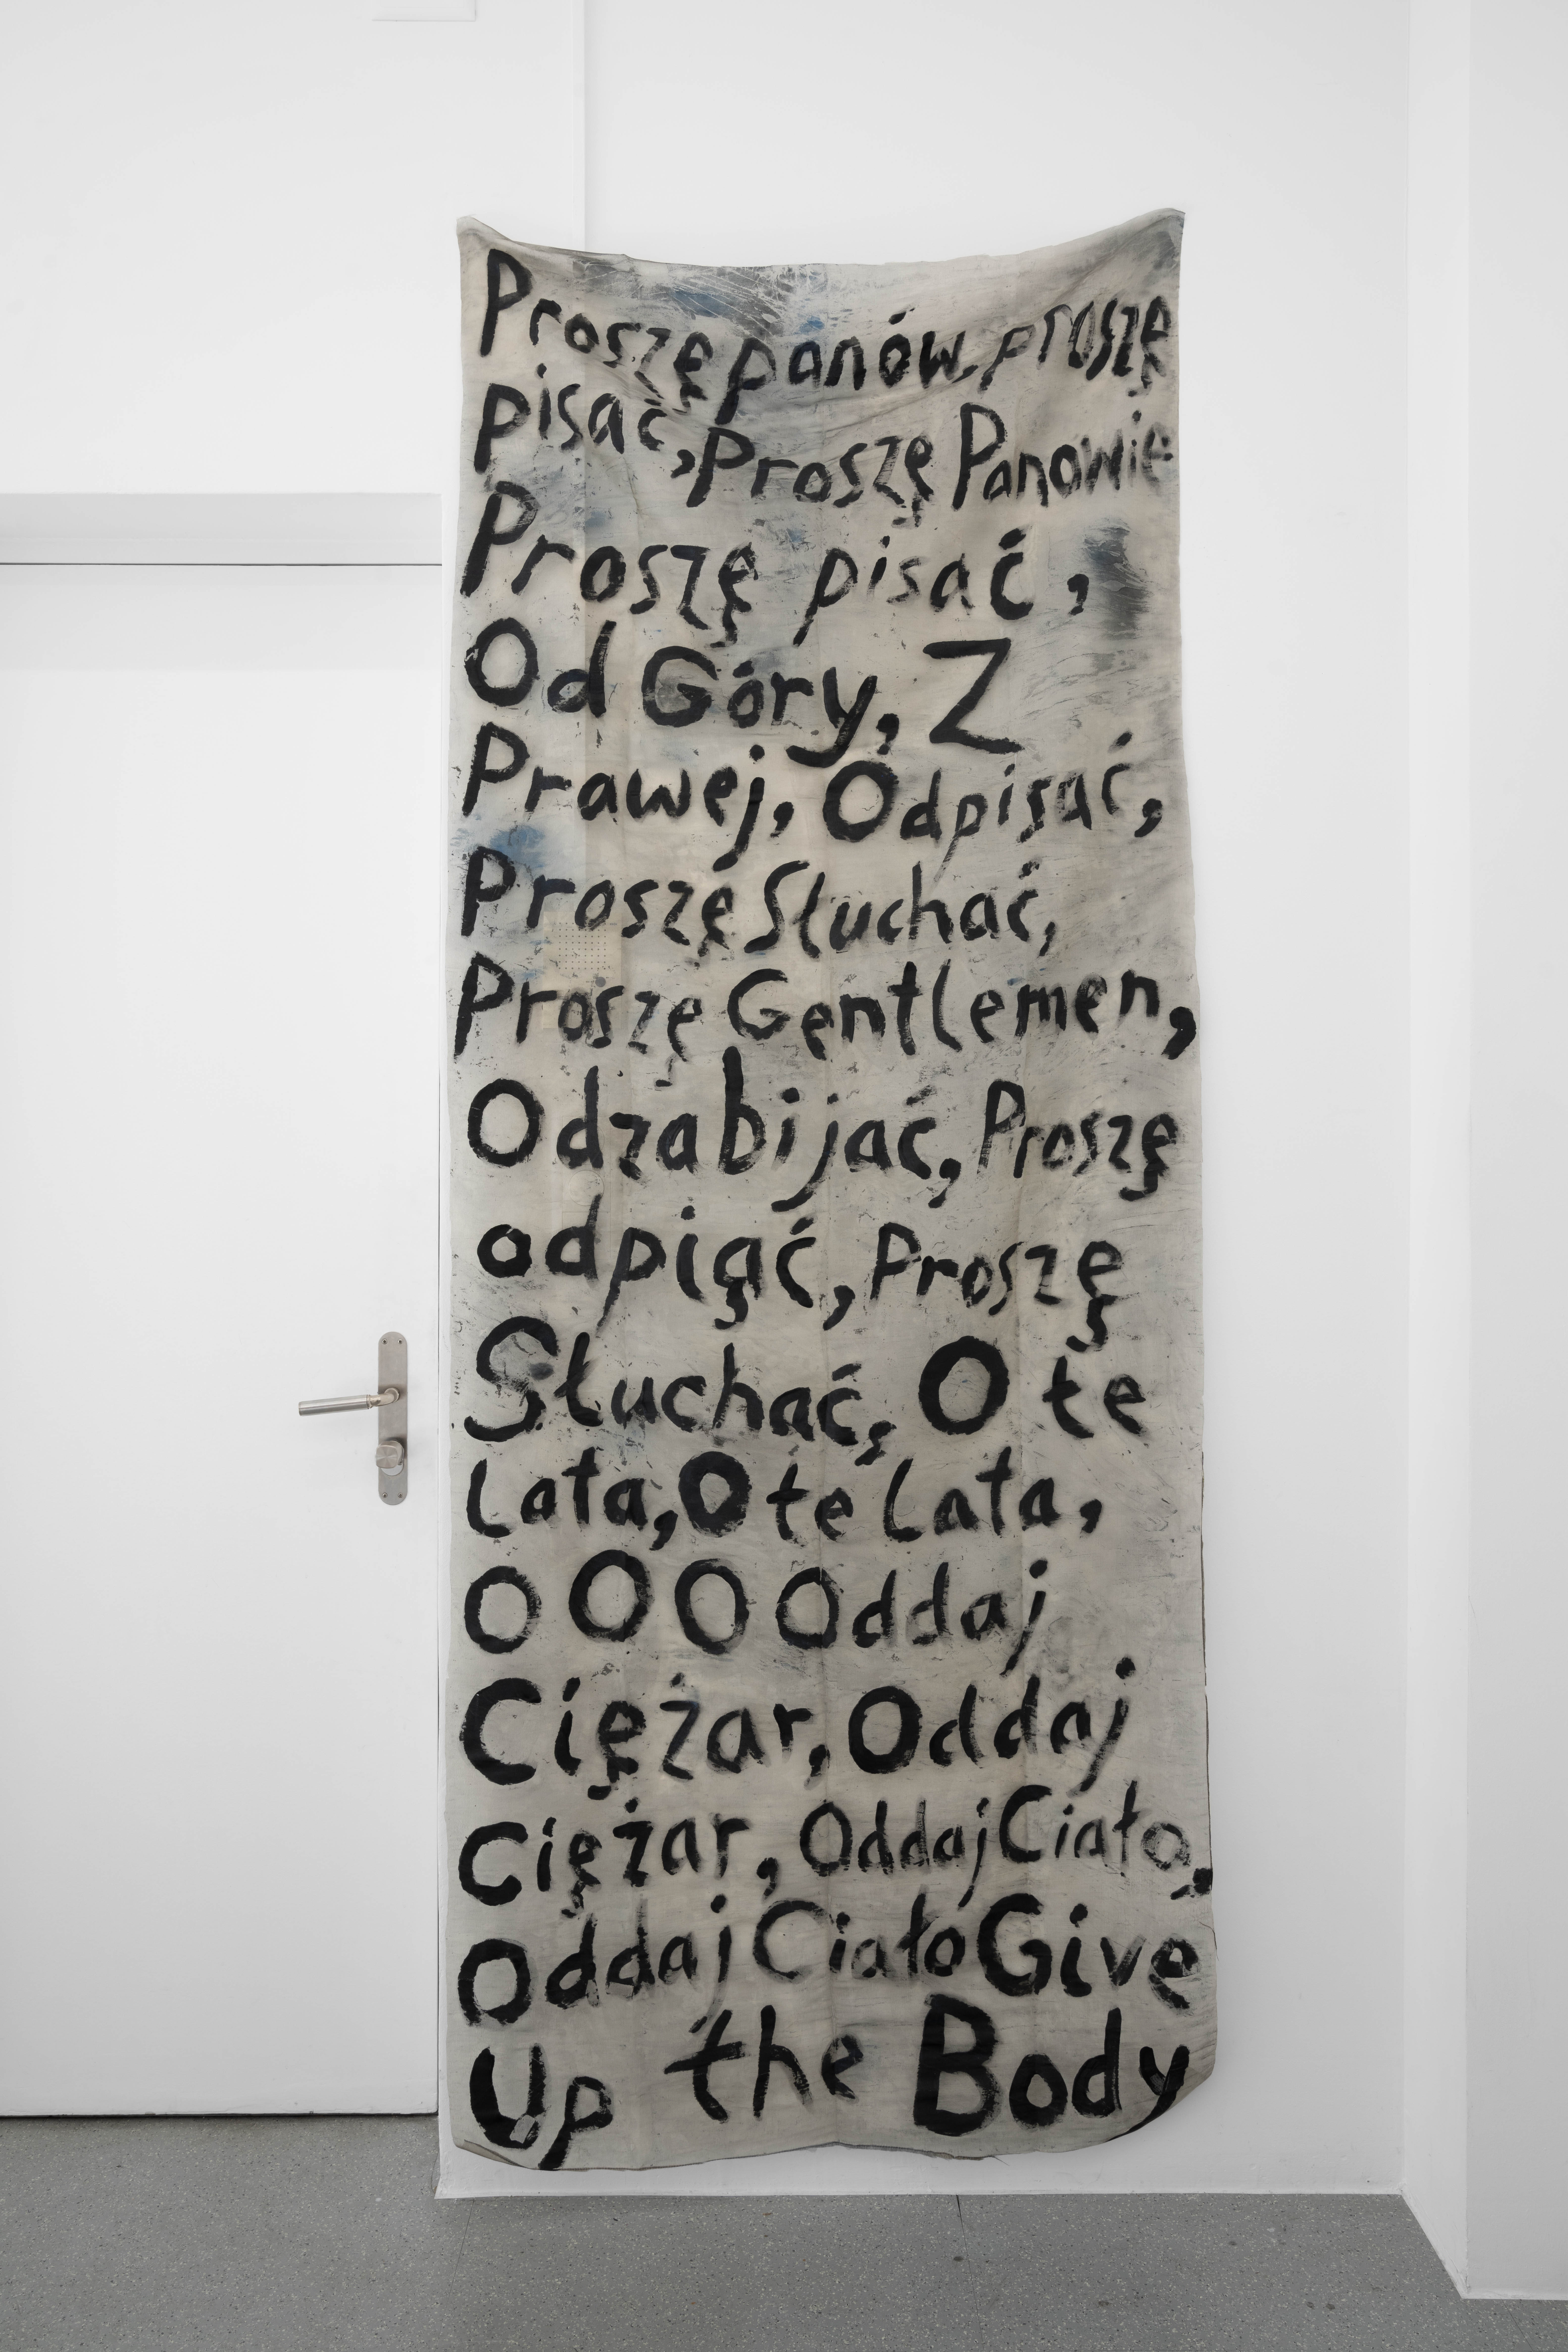 Proszę panów, proszę
pisać, Proszę Panowie
Proszę pisać,
Od Góry, Z
Prawej, Odpisać,
Proszę Słuchać,
Proszę Gentlemen,
Odzabijać, Proszę
odpiąć, Proszę
Słuchać, O te
Lata, O te Lata,
O O O Oddaj
Ciężar, Oddaj
Ciężar, Oddaj Ciało,
Oddaj Ciało Give
Up the Body